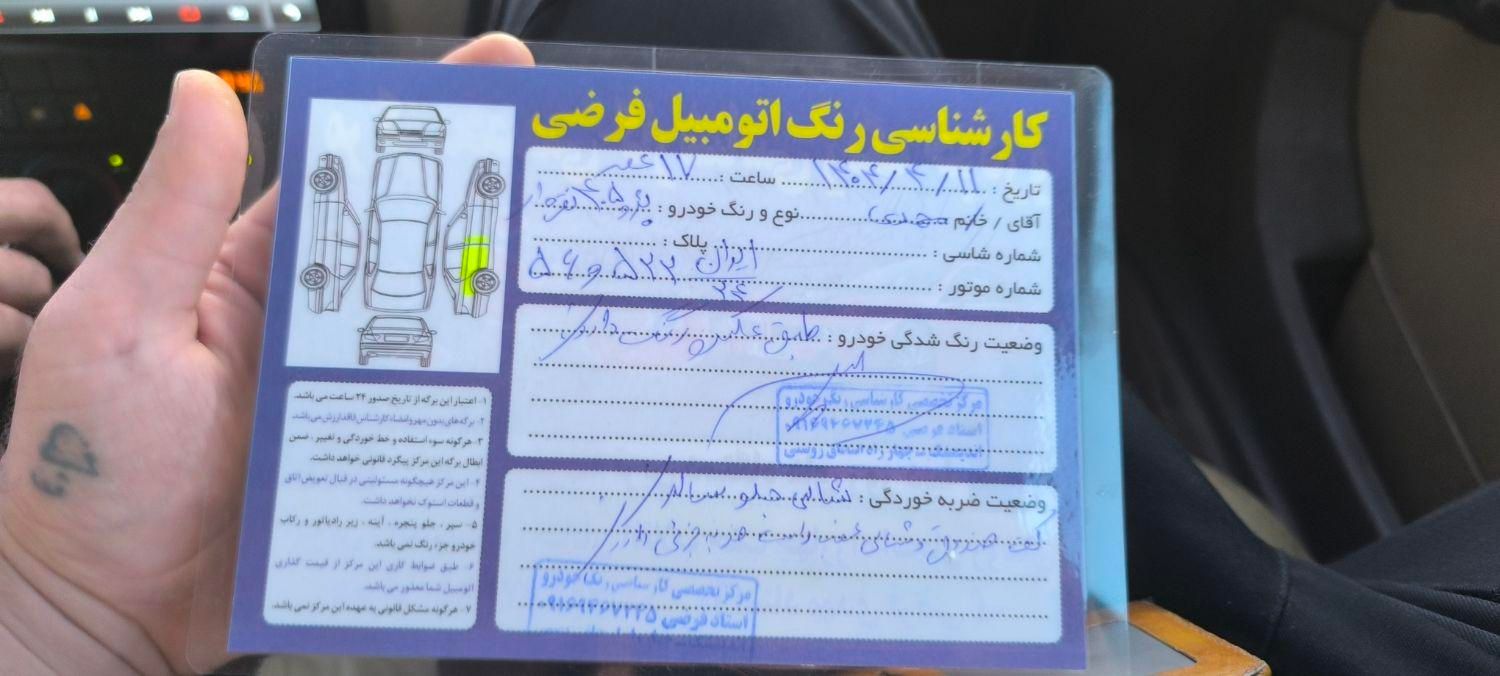 کارشناسی رنگ اتومبیل فرضی
تاریخ : ۱۴۰۴/۴/۱۱ ساعت : ۱۷ عصر
آقای / خانم نوع و رنگ خودرو : پژو ۴۰۵ نقره‌ای
شماره شاسی : پلاک :
شماره موتور : ایران ۳۴ ۵۳۳ و ۵۶
وضعیت رنگ شدگی خودرو : طبق عکس رنگ دارد
وضعیت ضربه خوردگی : شاسی جلو سالم
کف صندوق و شاسی عقب راست ضربه جزئی دارد
مرکز تخصصی کارشناسی رنگ خودرو
استاد فرضی ۰۹۱۶۹۴۶۷۲۴۵
اندیمشک - چهار راه
مرکز تخصصی کارشناسی رنگ خودرو
استاد فرضی ۰۹۱۶۹۴۶۷۲۴۵
۱- اعتبار این برگه از تاریخ صدور ۲۴ ساعت می باشد.
۲- برگه های بدون مهر و امضاء کارشناس فاقد ارزش می باشد.
۳- هرگونه سوء استفاده و خط خوردگی و تغییر ، ضمن
ابطال برگه این مرکز پیگرد قانونی خواهد داشت.
۴- این مرکز هیچگونه مسئولیتی در قبال تعویض اتاق
و قطعات استوک نخواهد داشت.
۵- سپر ، جلو پنجره ، آینه ، زیر رادیاتور و رکاب
خودرو جزء رنگ نمی باشد.
۶- طبق ضوابط کاری این مرکز از قیمت گذاری
اتومبیل شما معذور می باشد.
۷- هرگونه مشکل قانونی به عهده این مرکز نمی باشد.